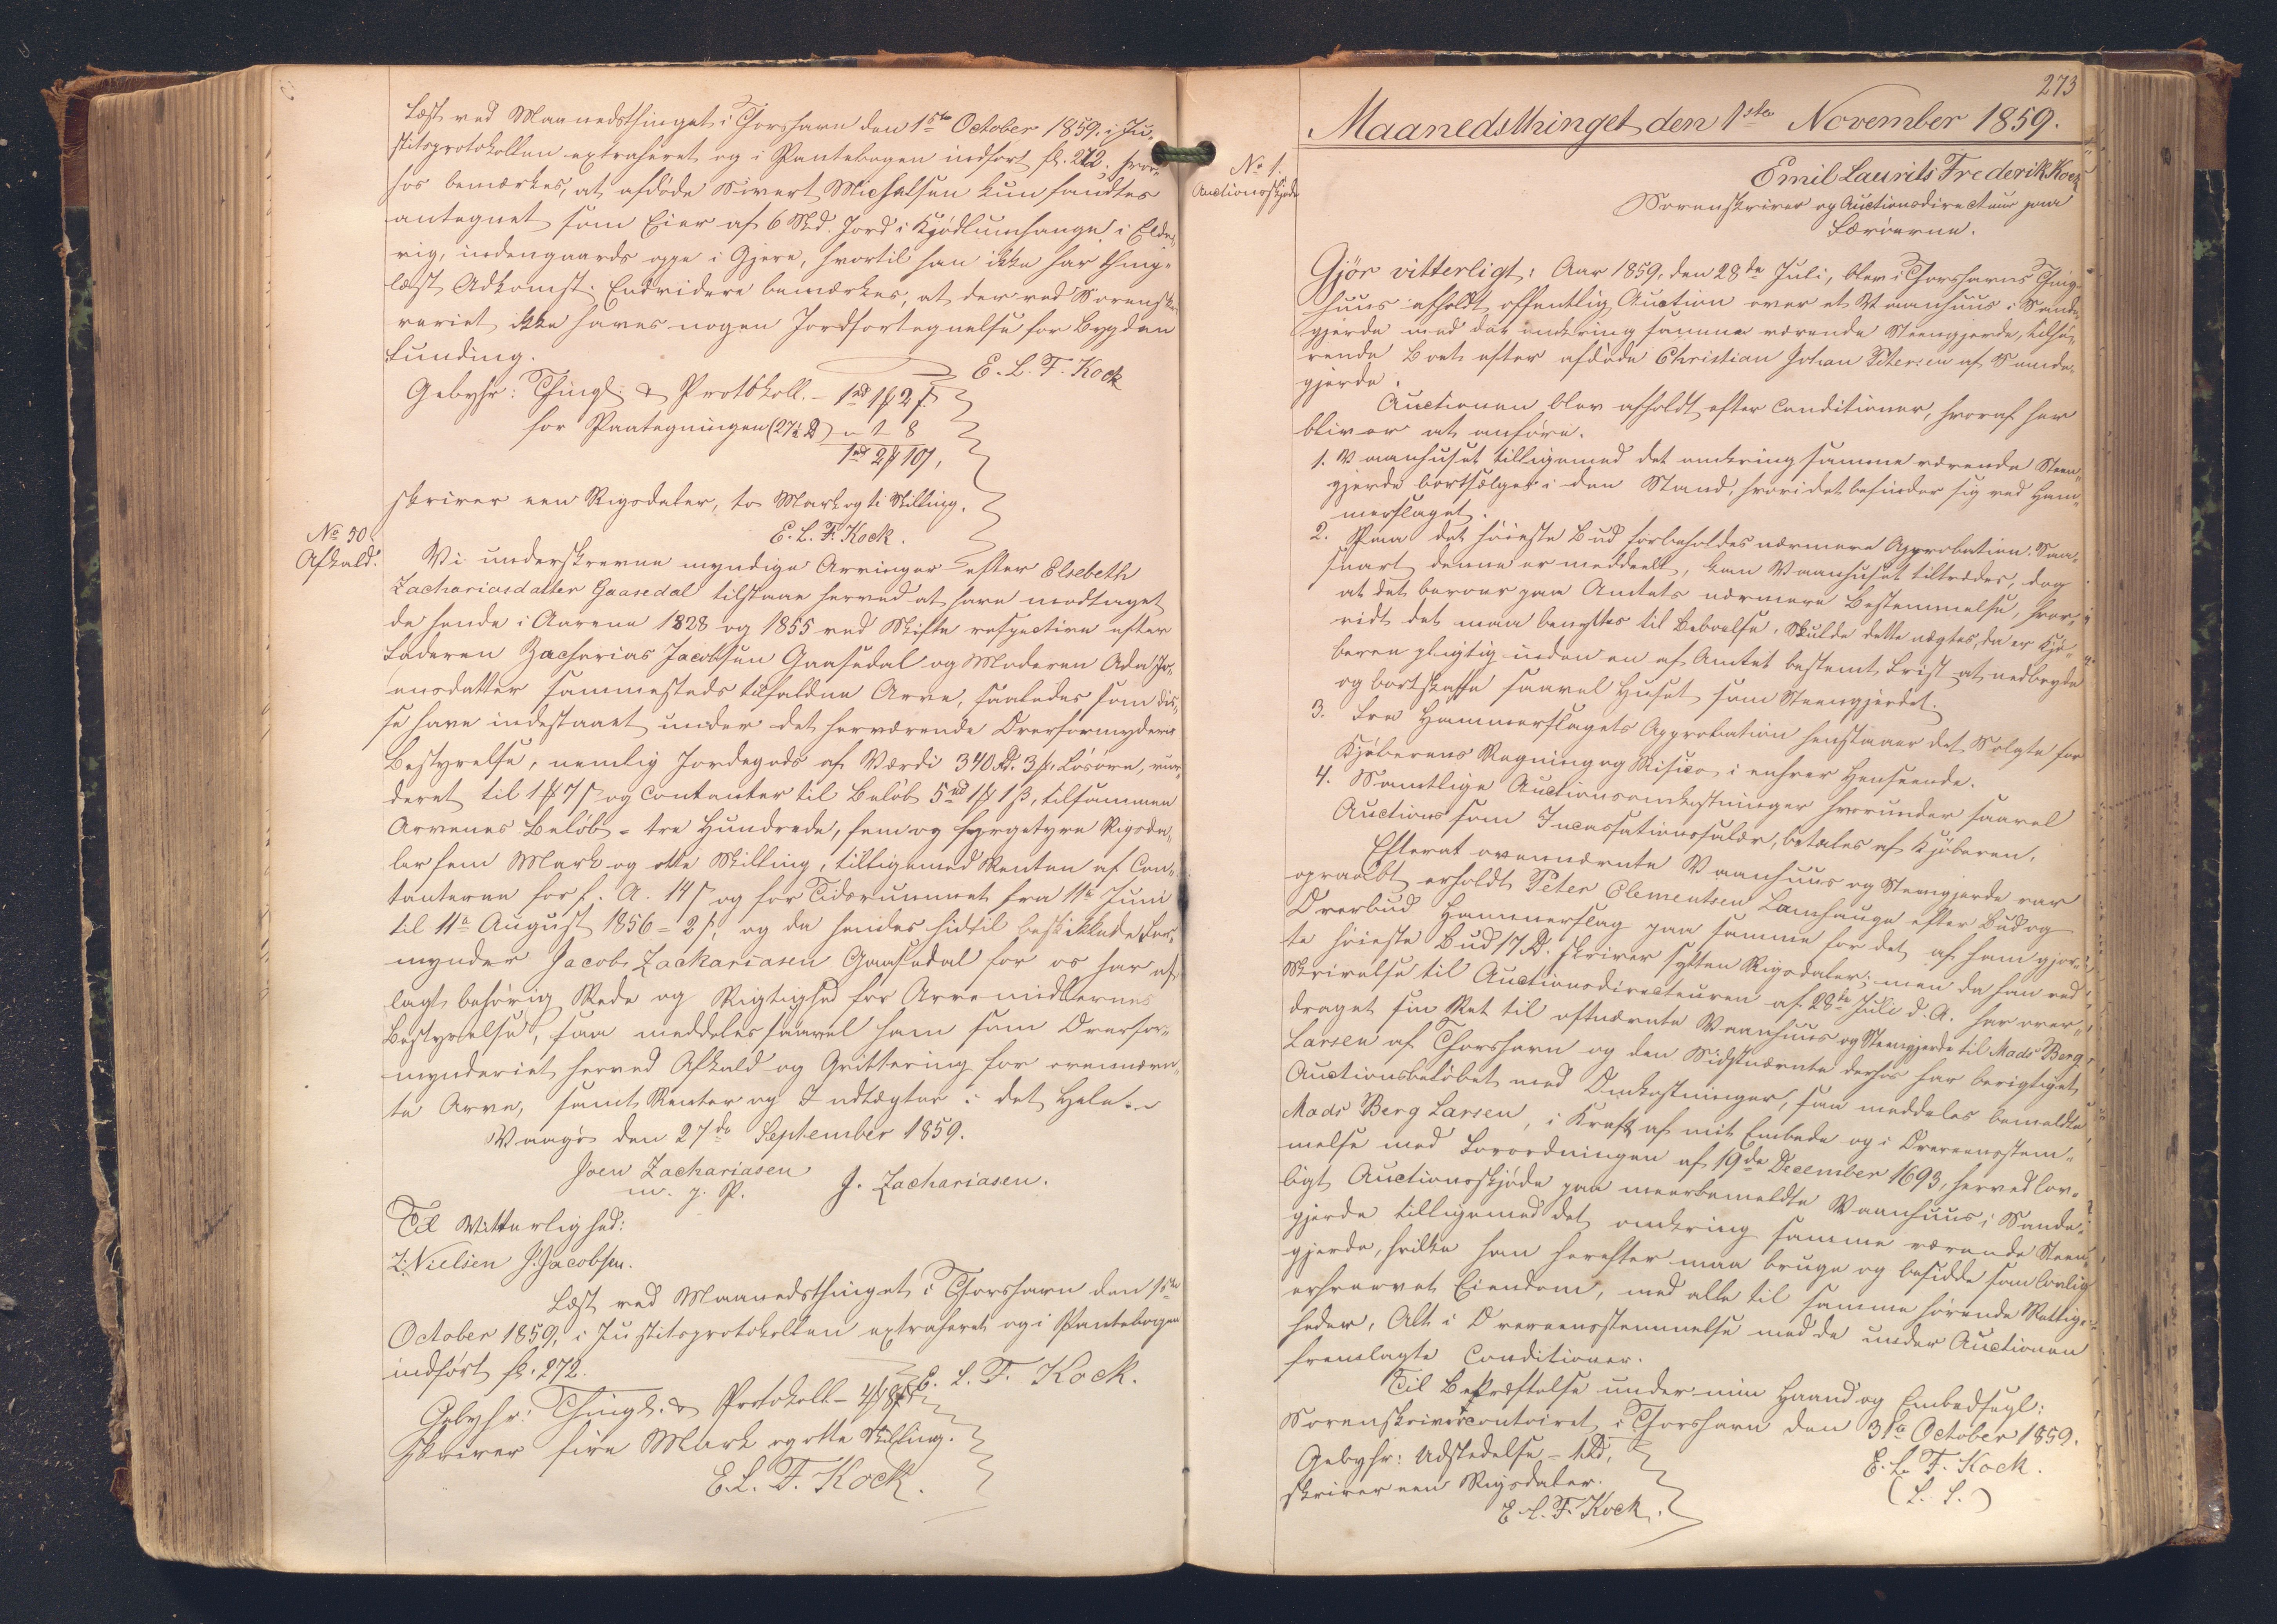 Læst ved Maanedsthinget i Thorshavn den 1ste October 1859, i Ju-
stitsprotokollen extraheret og i Pantebogen indført fl. 272. hvor-
hos bemærkes, at afdøde Sivert Michelsen kun fandtes
antegnet som Eier af 6 Skd. Jord i Kjødlumhauge i Elde-
vig, indengaards oppe i Gjere, hvortil han ikke har thing-
læst Adkomst. Endvidere bemærkes, at der ved Sorenskri-
veriet ikke haves nogen Jordfortegnelse for Bygden
Funding.
E. L. F. Kock
Gebyhr: Thingl. & Protokoll. - 1rd 1 # 2 ß
for Paategningen (27½ ₰) " 1 8
1rd 2 # 10 ß,
skriver een Rigsdaler, to Mark og ti Skilling.
E. L. F. Kock.
No 50.
Afkald.
Vi underskrevne myndige Arvinger efter Elsebeth
Zachariasdatter Gaasedal tilstaae herved at have modtaget
de hende i Aarene 1828 og 1855 ved Skifte respective efter
Faderen Zacharias Jacobsen Gaasedal og Moderen Ada Jo-
ensdatter sammesteds tilfaldne Arve, saaledes som dis-
se have indestaaet under det herværende Overformynderies
Bestyrelse, nemlig Jordegods af Værdi 340 Rd. 3 #, Løsøre, vur-
deret til 1 # 7 ß og Contanter til Beløb 5rd 1 # 1 ß, tilsammen
Arvenes Beløb = tre Hundrede, fem og fyrgetyve Rigsda-
ler fem Mark og otte Skilling, tilligemed Renten af Con-
tanterne for f. A. 14 ß og for Tidsrummet fra 11te Juni
til 11te August 1856 = 2 ß, og da hendes hidtil beskikkede For-
mynder Jacob Zachariasen Gaasedal for os har af-
lagt behørig Rede og Rigtighed for Arvemidlernes
Bestyrelse, saa meddeles saavel ham som Overfor-
mynderiet herved Afkald og Qvittering for ovennævn-
te Arve, samt Renter og Indtægter i det Hele.
Vaagø den 27de September 1859.
Joen Zachariasen J. Zachariasen.
m. f. P.
Til Vitterlighed:
Z. Nielsen J. Jacobsen.
Læst ved Maanedsthinget i Thorshavn den 1ste
October 1859, i Justitsprotokollen extraheret og i Pantebogen
indført fl. 272.
E. L. F. Kock.
Gebyhr: Thingl. & Protokoll - 4 # 8 ß
skriver fire Mark og otte Skilling.
E. L. F. Kock.
273
Maanedsthinget den 1ste November 1859.
No 1.
Auctionsskjøde
Emil Laurits Frederik Kock
Sorenskriver og Auctionsdirecteur paa
Færøerne.
Gjör vitterligt: Aar 1859, den 28de Juli, blev i Thorshavns Thing-
huus afholdt offentlig Auction over et Vaanhuus i Sande-
gjerde med det omkring samme værende Steengjerde, tilhø-
rende Boet efter afdøde Christian Johan Petersen af Sande-
gjerde.
Auctionen blev afholdt efter Conditioner, hvoraf her
bliver at anføre.
1. Vaanhuset tilligemed det omkring samme værende Steen-
gjerde bortsælges i den Stand, hvori det befinder sig ved Ham-
merslaget.
2. Paa det høieste Bud forbeholdes nærmere Approbation. Saa-
snart denne er meddeelt, kan Vaanhuset tiltrædes, dog
at det beroer paa Amtets nærmere Bestemmelse, hvor-
vidt det maa benyttes til Beboelse. Skulde dette nægtes, da er Kjø-
beren pligtig inden en af Amtet bestemt Frist at nedbryde
og bortskaffe saavel Huset som Steengjerdet.
3. Fra Hammerslagets Approbation henstaaer det Solgte for
Kjøberens Regning og Risico i enhver Henseende.
4. Samtlige Auctionsomkostninger hvorunder saavel
Auctions som Incassationssalær, betales af Kjøberen.
Efterat ovennævnte Vaanhuus og Steengjerde var
opraabt erholdt Peter Clementsen Lamhauge efter Bud og
Overbud Hammerslag paa samme for det af ham gjor-
te høieste Bud 17 Rd. skriver sytten Rigsdaler; men da han ved
Skrivelse til Auctionsdirecteuren af 28de Juli d. A. har over-
draget sin Ret til oftnævnte Vaanhuus og Steengjerde til Mads Berg
Larsen af Thorshavn og den Sidstnævnte derhos har berigtiget
Auctionsbeløbet med Omkostninger, saa meddeles bemeldte
Mads Berg Larsen, i Kraft af mit Embede og i Overeensstem-
melse med Forordningen af 19de December 1693, herved lov-
ligt Auctionsskjøde paa meerbemeldte Vaanhuus i Sande-
gjerde tilligemed det omkring samme værende Steen-
gjerde, hvilke han herefter maa bruge og besidde som lovlig
erhvervet Eiendom, med alle til samme hørende Rettig-
heder, Alt i Overeensstemmelse med de under Auctionen
fremlagte Conditioner.
Til Bekræftelse under min Haand og Embedsegl:
Sorenskrivercontoiret i Thorshavn den 31te October 1859.
E. L. F. Kock.
(L. S.)
Gebyhr: Udstedelse - 1 Rd,
skriver een Rigsdaler.
E. L. F. Kock.